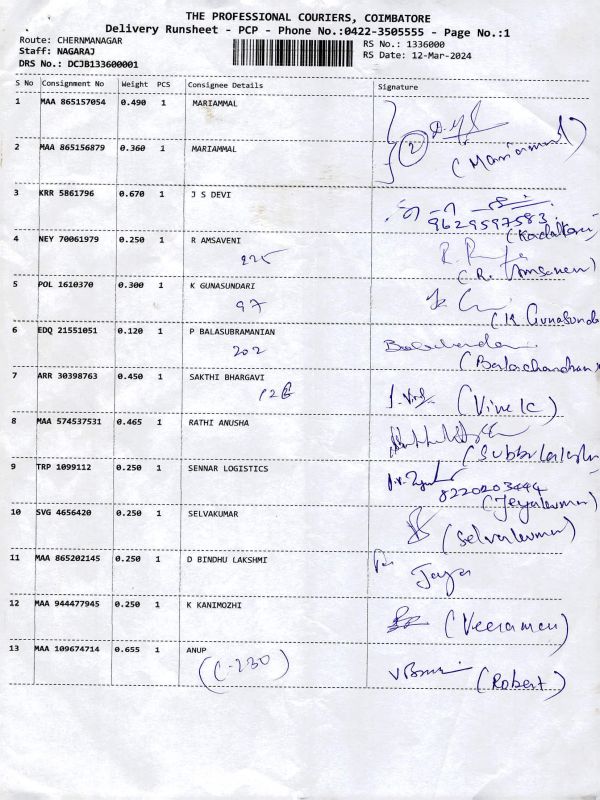 THE PROFESSIONAL COURIERS, COIMBATORE
Delivery Runsheet - PCP - Phone No.:0422-3505555 - Page No.:1
Route: CHERNMANAGAR
RS No.: 1336000
Staff: NAGARAJ
RS Date: 12-Mar-2024
DRS No.: DCJB133600001
S No Consignment No Weight PCS Consignee Details Signature
1 MAA 865157054 0.490 1 MARIAMMAL
2 MAA 865156879 0.360 1 MARIAMMAL 2 (Mariammal)
3 KRR 5861796 0.670 1 J S DEVI
9629597583
4 NEY 70061979 0.250 1 R AMSAVENI
225 (R. Amsaveni)
5 POL 1610370 0.300 1 K GUNASUNDARI
97 (K Gunasunda
6 EDQ 21551051 0.120 1 P BALASUBRAMANIAN
202 (Balachandran
7 ARR 30398763 0.450 1 SAKTHI BHARGAVI
(Vivek)
8 MAA 574537531 0.465 1 RATHI ANUSHA
9 TRP 1099112 0.250 1 SENNAR LOGISTICS
8220203444
(Jeyakumar)
10 SVG 4656420 0.250 1 SELVAKUMAR
(Selvakumar)
11 MAA 865202145 0.250 1 D BINDHU LAKSHMI
Jaya
12 MAA 944477945 0.250 1 K KANIMOZHI (Veeramani)
13 MAA 109674714 0.655 1 ANUP
(C-230) (Robert)